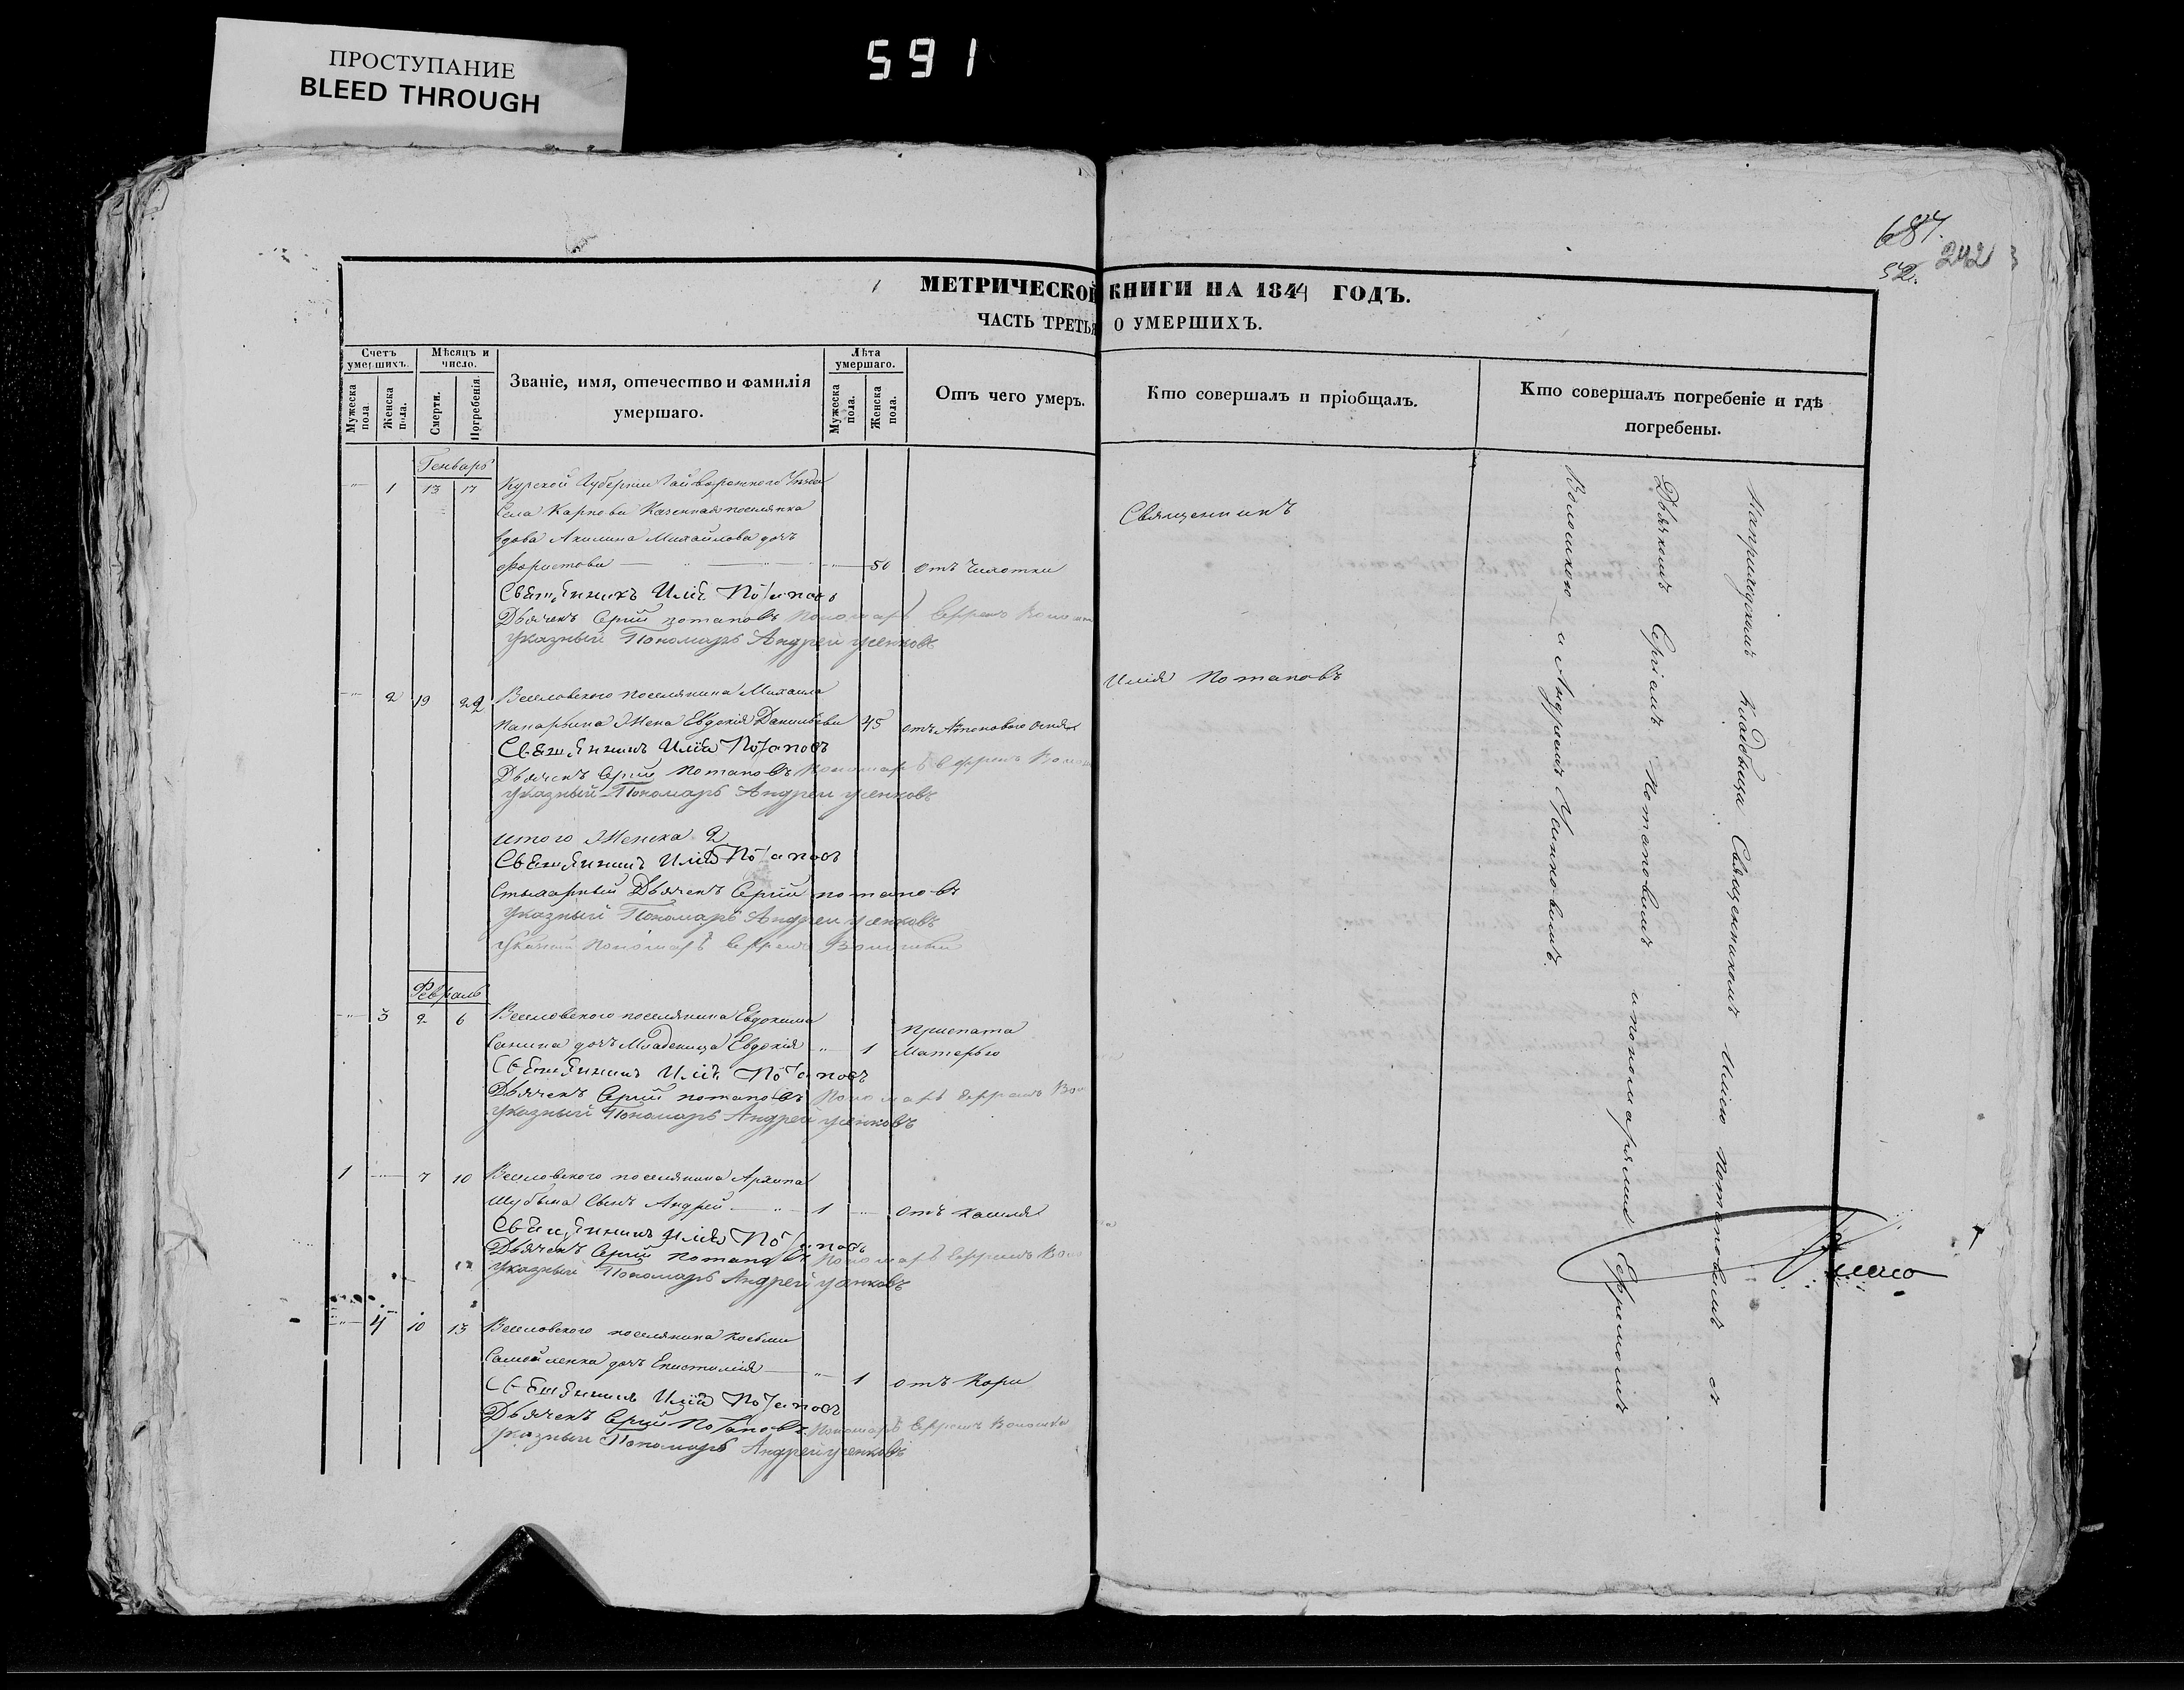 ПРОСТУПАНИЕ
BLEED THROUGH
591
687.
52.
242
МЕТРИЧЕСКОЙ КНИГИ НА 1844 ГОДЪ.
ЧАСТЬ ТРЕТЬЯ О УМЕРШИХЪ.
Счетъ умершихъ.
Мѣсяцъ и число.
Званіе, имя, отечество и фамилія умершаго.
Лѣта умершаго.
Отъ чего умеръ.
Кто совершалъ и пріобщалъ.
Кто совершалъ погребеніе и гдѣ погребены.
Мужеска пола.
Женска пола.
Смерти.
Погребенія.
Мужеска пола.
Женска пола.
Генварь
1 13 17 Курской Губерніи Хайворонского Уѣзда
Села Карпова Казенная поселянка
вдова Акилина Михайлова дочь
50 отъ Чихотки
Священникъ Илія Потаповъ
Дьячекъ Сергій Потаповъ Пономарь Ефремъ
Указный Пономарь Андрей Усенковъ
2 19 22 Веселовского поселянина Михаила
жена Евдокія Данильева 45 отъ Антонового Огня
Священникъ Илія Потаповъ
Дьячекъ Сергій Потаповъ Пономарь Ефремъ
Указный Пономарь Андрей Усенковъ
итого женска 2
Священникъ Илія Потаповъ
Стихарный Дьячекъ Сергій Потаповъ
Указный Пономарь Андрей Усенковъ
Указный Пономарь Ефремъ
Февраль
3 2 6 Веселовского поселянина Евдокима
Санина дочь Младеница Евдокія 1 приспата Матерью
Священникъ Илія Потаповъ
Дьячекъ Сергій Потаповъ Пономарь Ефремъ
Указный Пономарь Андрей Усенковъ
1 7 10 Веселовского поселянина Архипа
Шубина Сынъ Андрей 1 отъ Кашля
Священникъ Илія Потаповъ
Дьячекъ Сергій Потаповъ Пономарь Ефремъ
Указный Пономарь Андрей Усенковъ
4 10 13 Веселовского поселянина Косьми
Самойленка дочь Епистимія 1 отъ Кори
Священникъ Илія Потаповъ
Дьячекъ Сергій Потаповъ Пономарь Ефремъ
Указный Пономарь Андрей Усенковъ
Священникъ
Илія Потаповъ
На приходскомъ Кладбищи Священникомъ Иліею Потаповымъ съ
Дьячкомъ Сергіемъ Потаповымъ и пономарями Ефремомъ
Волошкою и Андреемъ Усенковымъ.